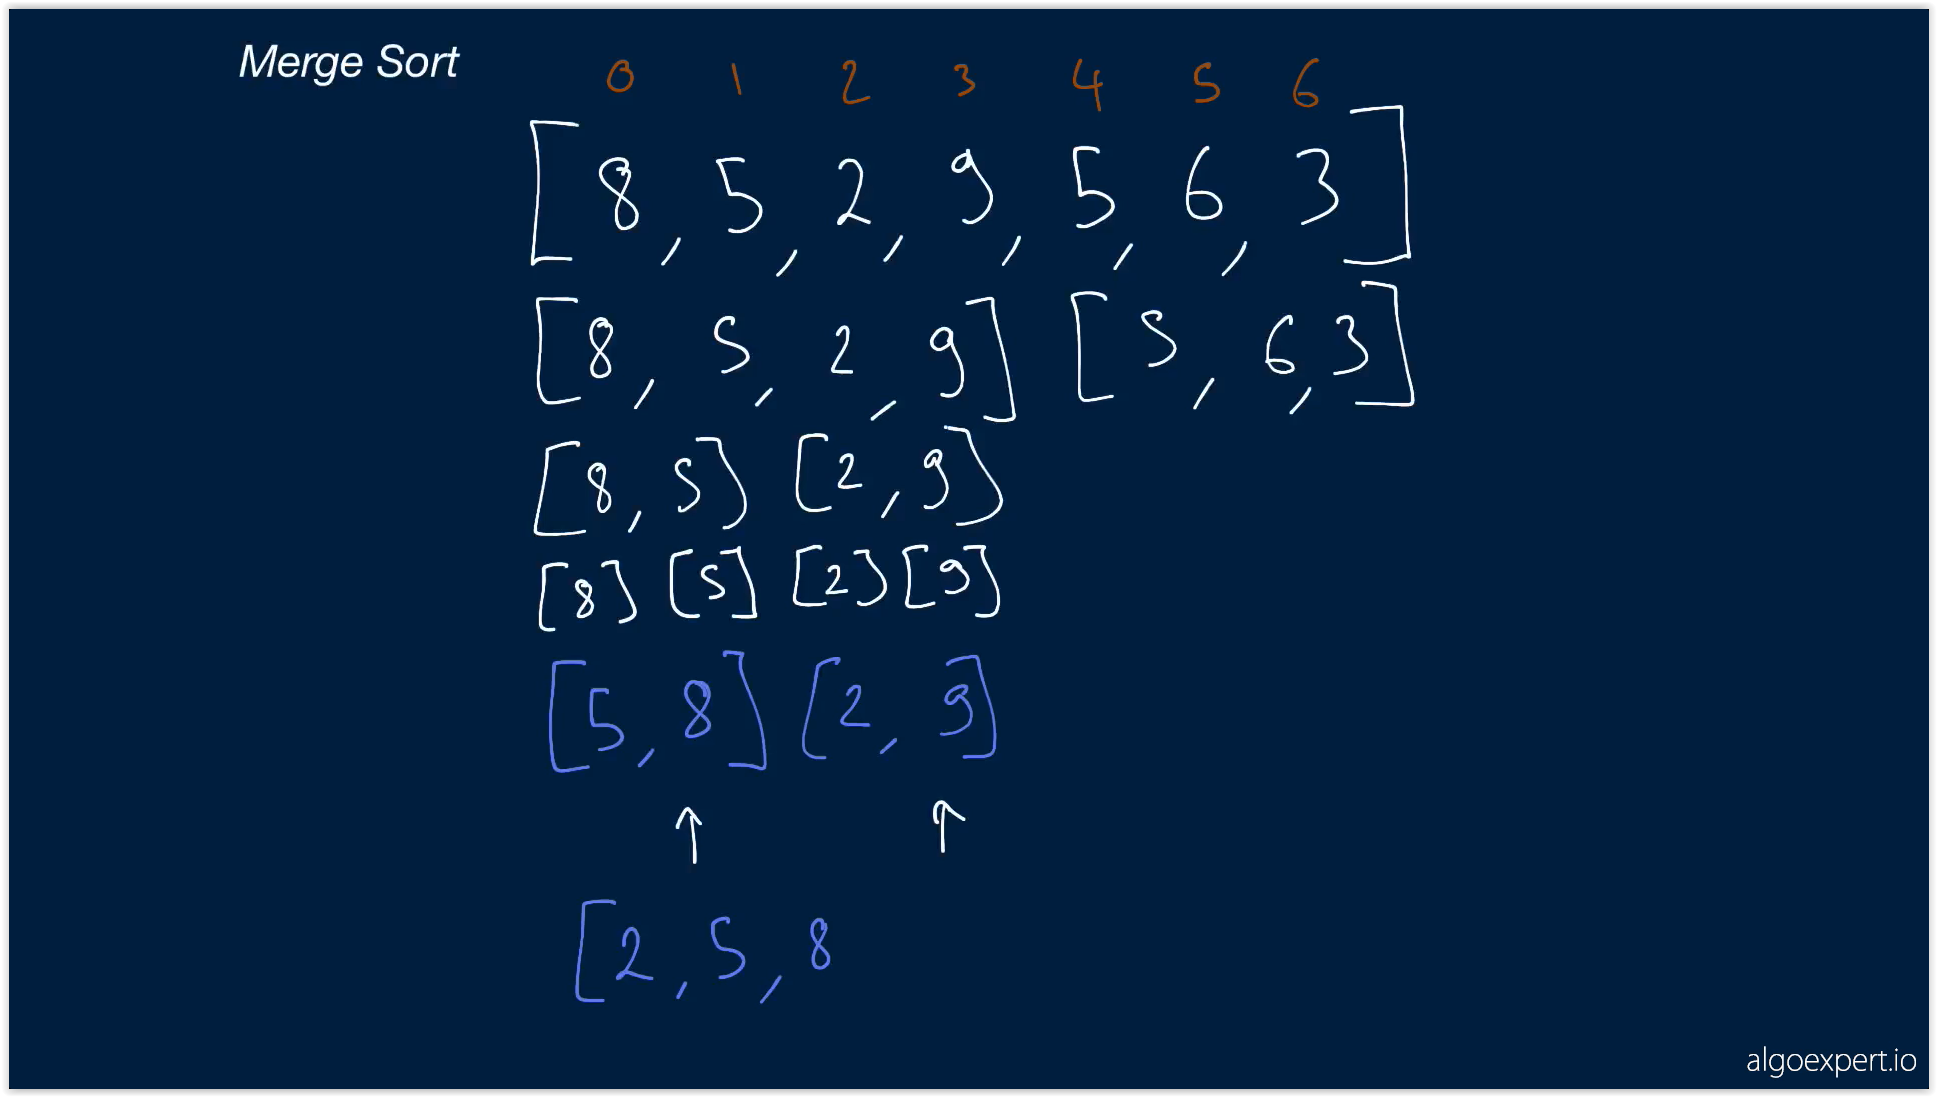 Merge Sort
0 1 2 3 4 5 6
[8, 5, 2, 9, 5, 6, 3]
[8, 5, 2, 9] [5, 6, 3]
[8, 5] [2, 9]
[8] [5] [2] [9]
[5, 8] [2, 9]
↑ ↑
[2, 5, 8
algoexpert.io